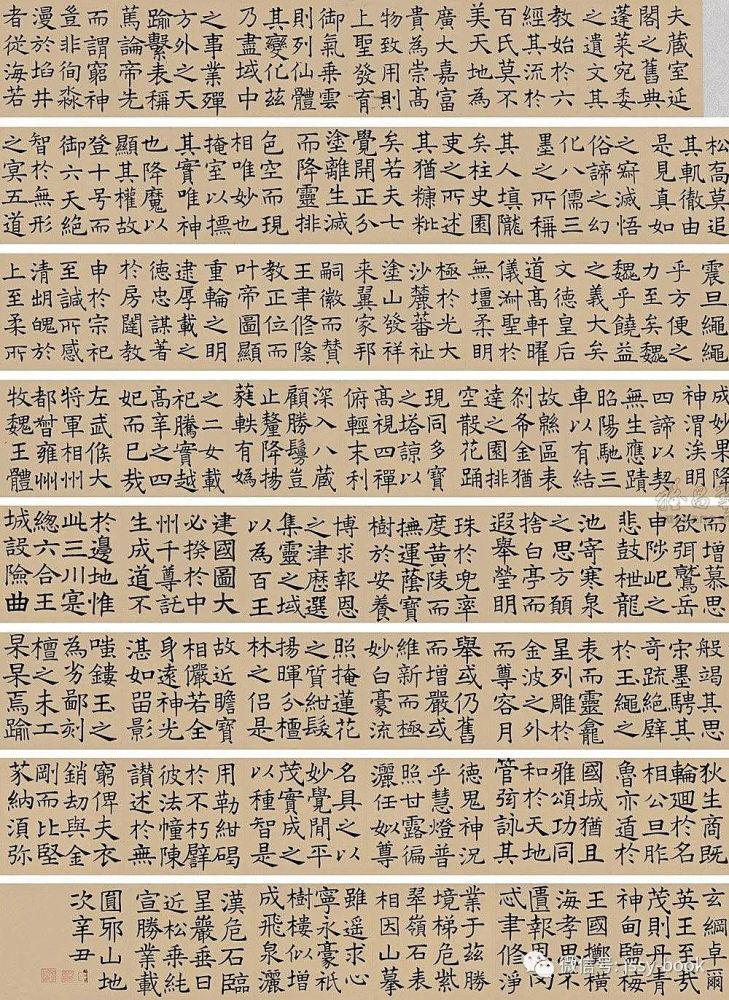 夫蔵室延
閣之舊典
蓬萊宛委
之遺文其
教始於六
經其流於
百氏莫不
美天地為
廣大嘉富
貴為崇高
物致用則
上聖發育
御氣乘雲
則列仙體
其變化茲
乃盡域中
之事業殫
方外之天
踰繫表稱
篤論帝先
而謂窮神
豈非徇淼
漫於埳井
者從海若
松高莫追
其軌徹由
是見真如
之寂滅悟
俗諦之幻
化八儒三
墨之所稱
其人填隴
矣柱史園
吏之所述
其猶糠粃
矣若夫七
覺開正分
塗離生滅
而降靈排
色空而現
相唯妙也
掩室以摽
其實唯神
也降魔以
顯其權故
登十號而
御六天絕
智於無形
之冥五道
震旦繩繩
乎方便之
力至矣魏
魏乎饒益
之義大矣
文德皇后
道高軒曜
儀渊聖於
無壇柔明
極於光大
沙麓蕃祉
塗山發祥
来翼家邦
嗣徽而贊
王聿修陰
教正位而
叶帝圖顯
重輪之明
逮厚載之
德忠謀著
於房闥教
申於宗祀
至誠所感
清明魄於
上至柔所
成妙果降
神渭涘明
四諦以契
無生應蹟
昭陽馳三
車以有結
故緜區表
刹金猶
達之園排
空散花踊
現同多寶
之塔諒以
高視四禪
俯輕末利
深入八蔵
顧勝鬘豈
止釐降揚
蕤軼有嬀
之二女載
祀騰實越
高辛之四
妃而已哉
左武候大
將軍相州
都督雍州
牧魏王體
而增慕思
欲弭鷲岳
申陟屺之
悲鼓枻龍
池寄寒泉
之思方願
捨白亭而
遐舉瑩明
珠於兜率
度黄陵而
撫運蔭寶
樹於安養
博求報恩
之津歷選
集靈之域
以為百王
建國圖大
必揆於中
州千尊託
生成道不
於邊地惟
此三川寔
總六合王
城設險曲
般竭其思
宋墨騁其
奇疏絕壁
於玉繩之
表而靈龕
星列雕於
金波之外
而尊容月
舉或仍舊
而增嚴或
維新而極
妙白豪流
照掩蓮花
之質紺髮
揚暉分檀
林之侣是
故近瞻寶
相儼若全
身遠神光
湛如留影
嗤鏤玉之
為劣鄙刻
檀之未工
杲杲焉踰
狄生商既
輪廻於名
相公旦胙
魯亦道於
國城猶且
雅頌功同
和於天地
管弦詠其
德鬼神況
乎慧燈普
照甘露徧
灑任姒尊
名具之以
妙覺閒平
茂實成之
以種智是
用勒紺碣
於不朽譬
彼法幢陳
讚述於無
窮俾夫衣
銷劫與金
剛而比堅
芥納須弥
玄綱卓爾
英王至哉
茂則丹青
神甸鹽梅
王國擲橫
海孝思不
匱報恩罔
忒聿修淨
業于茲勝
境梯危紫
翠嶺石表
相因山摹
雖遥求心
寧永豪祇
樹樓似增
成飛泉灑
漢危石臨
星巖垂日
近松乘純
宣勝業載
圓邪山地
次辛丑
微信号: jssy-book